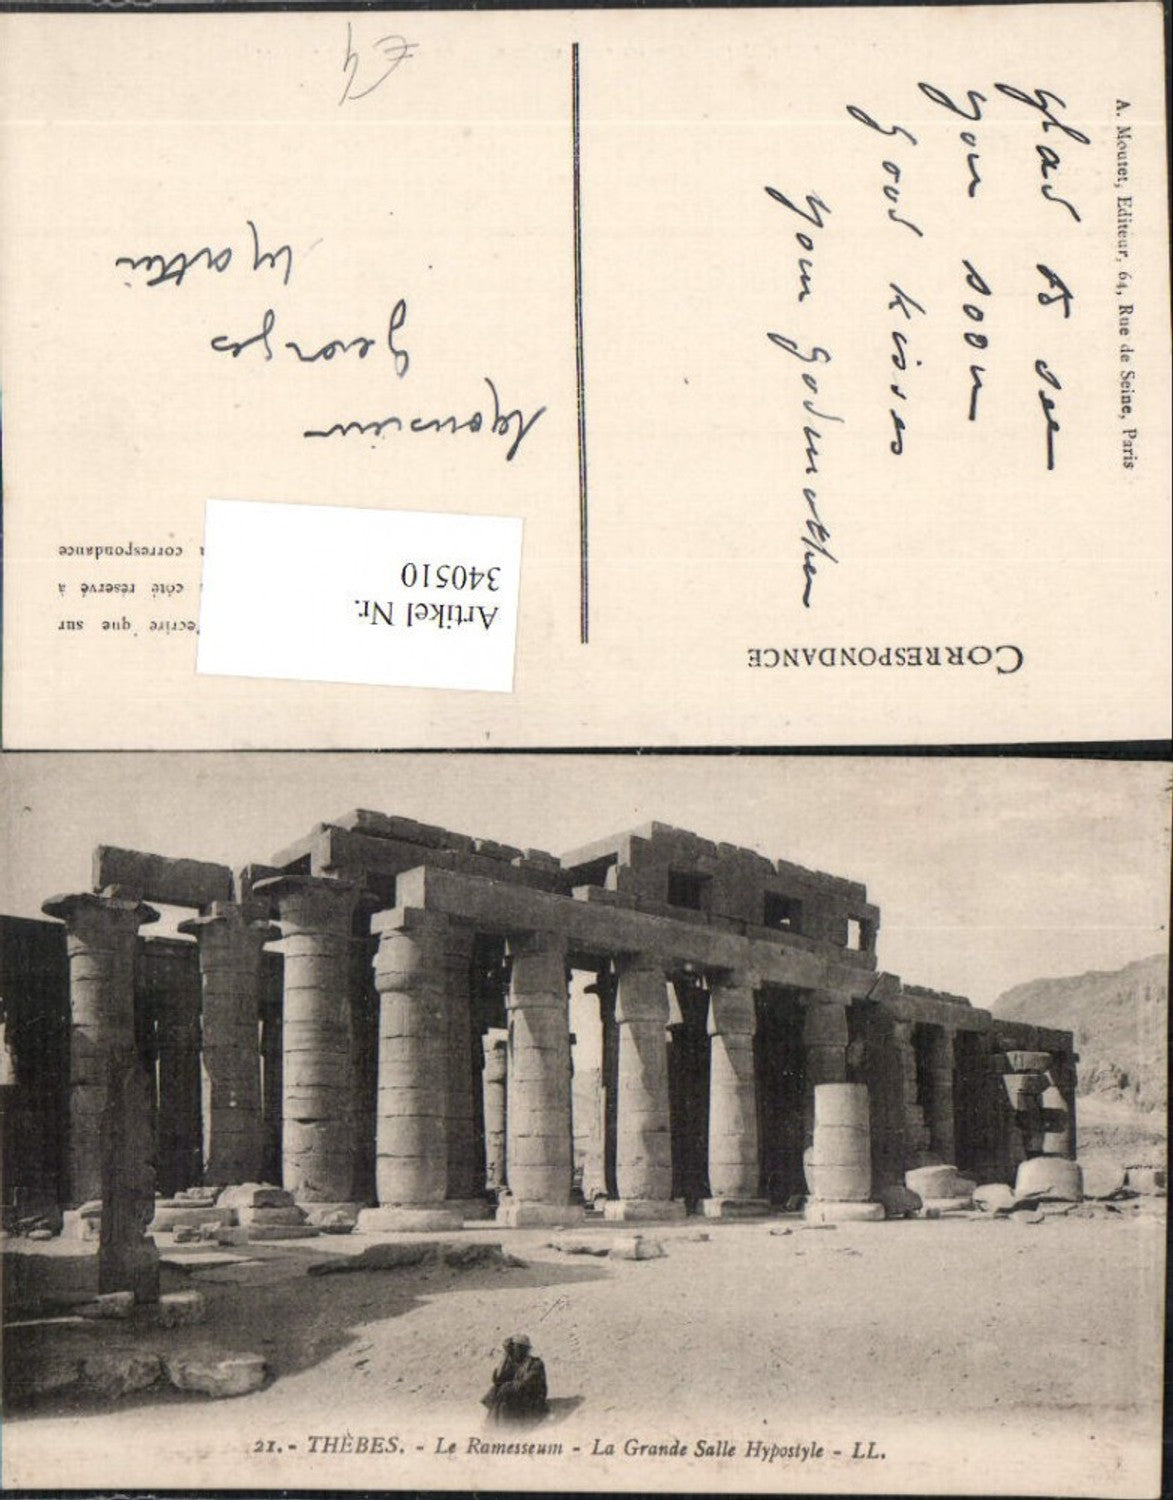 CORRESPONDANCE
A. Moutet, Editeur, 64, Rue de Seine, Paris
glad to see
you soon
good kisses
your godmother
écrire que sur
côté réservé à
correspondance
Artikel Nr.
340510
Monsieur
Georges
E4
21. - THÈBES. - Le Ramesseum - La Grande Salle Hypostyle - LL.